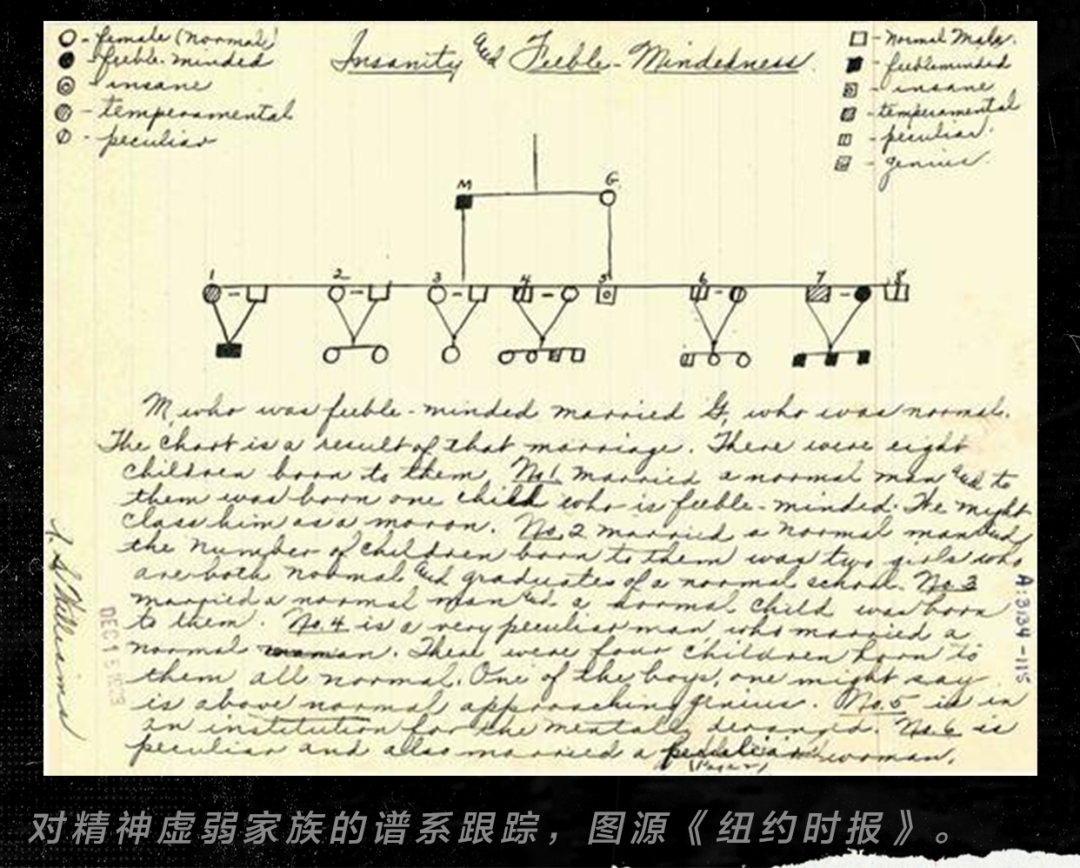 Insanity and Feeble-Mindedness.
- female (normal)
- feeble-minded
- insane
- temperamental
- peculiar
- Normal Male.
- feebleminded
- insane
- temperamental
- peculiar.
- genius.
M G.
1 2 3 4 5 6 7 8
M, who was feeble-minded married G, who was normal.
The chart is a result of that marriage. There were eight
children born to them. No 1 married a normal man and to
them was born one child who is feeble-minded. We might
class him as a moron. No. 2 married a normal man and
the number of children born to them was two girls who
are both normal and graduates of a normal school. No 3
married a normal man and a normal child was born
to them. No. 4 is a very peculiar man, who married a
normal woman. There were four children born to
them all normal. One of the boys, one might say
is above normal approaching genius. No. 5 is in
an institution for the mentally deranged. No. 6 is
peculiar and also married a peculiar woman.
Williams
DEC 15
A:3134-115
对精神虚弱家族的谱系跟踪，图源《纽约时报》。